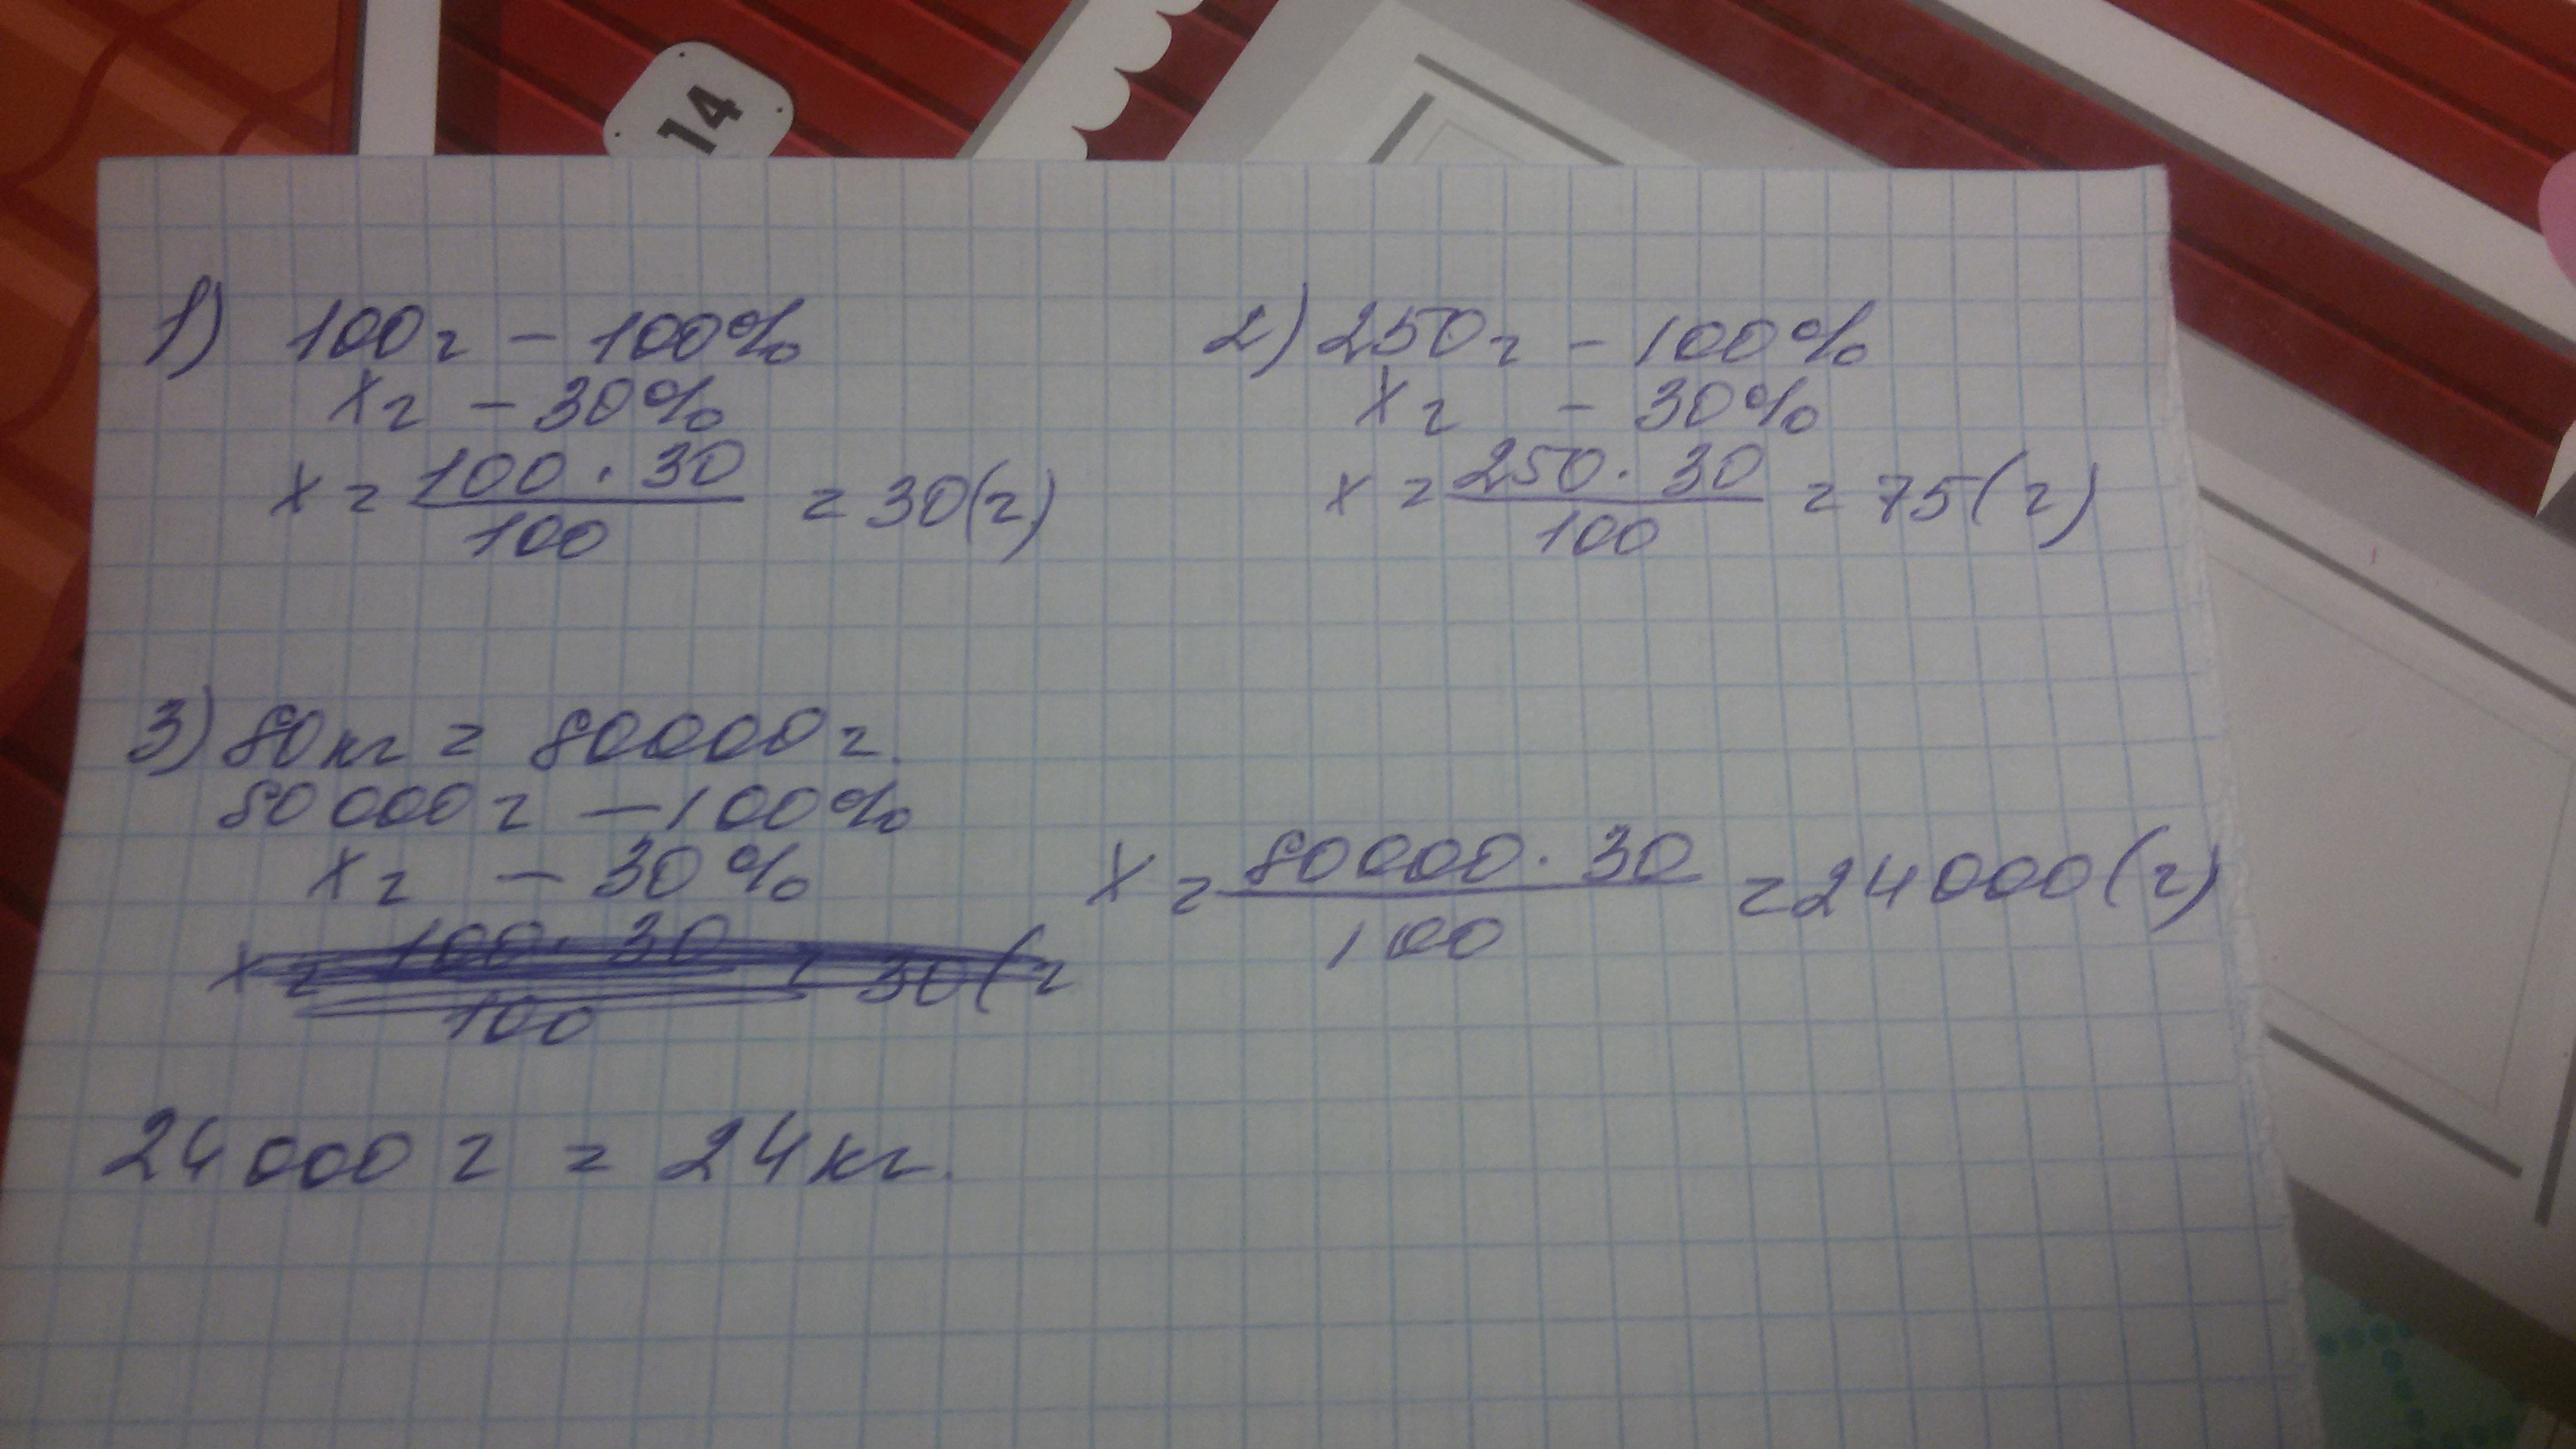 14
1) 100г - 100%
хг - 30%
х = 100 · 30 / 100 = 30(г)
2) 250г - 100%
хг - 30%
х = 250 · 30 / 100 = 75(г)
3) 80кг = 80000г.
80000г - 100%
хг - 30%
х = 100 · 30 / 100 = 30(г
х = 80000 · 30 / 100 = 24000(г)
24000г = 24кг.